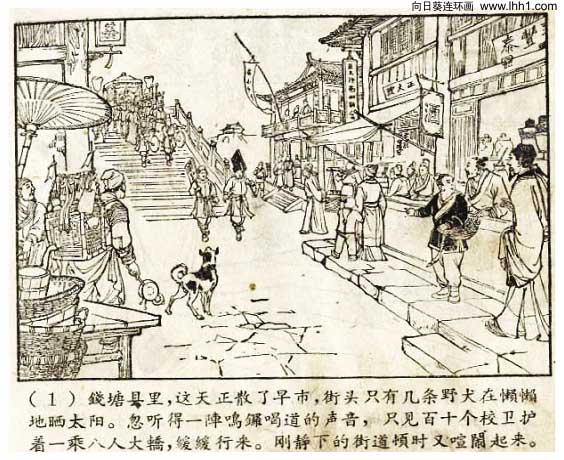 向日葵连环画 www.lhh1.com
酒
(1)錢塘县里,这天正散了早市,街头只有几条野犬在懒懒
地晒太阳。忽听得一陣鳴鑼喝道的声音,只见百十个校卫护
着一乘八人大轎,緩緩行来。刚静下的街道頓时又喧鬧起来。